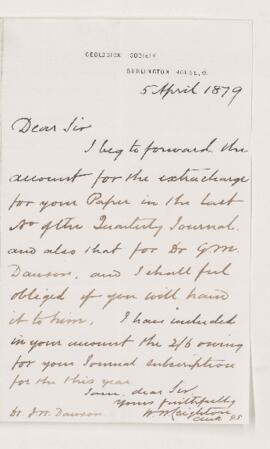 GEOLOGICAL SOCIETY,
BURLINGTON HOUSE, W.
5 April 1879
Dear Sir
I beg to forward the
account for the extra charge
for your Paper in the last
No of the Quarterly Journal.
and also that for Dr G.M.
Dawson, and I shall feel
obliged if you will hand
it to him. I have included
in your account the 2/6 owing
for your Journal subscription
for the this year
I am, dear Sir,
Yours faithfully
W W Leighton
Clerk
Dr J.W. Dawson